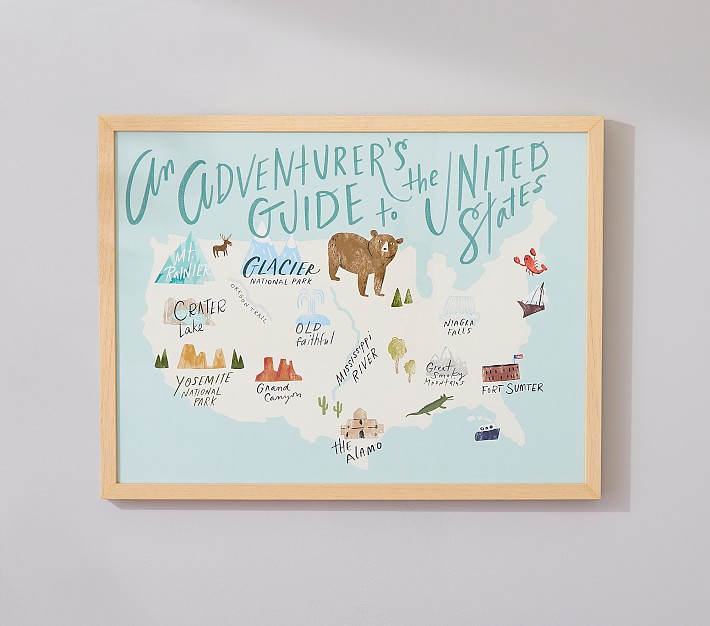 An ADVENTURER'S the UNITED
GUIDE to States
Mt.
RAINIER
GLACIER
NATIONAL PARK
OREGON TRAIL
CRATER
Lake
OLD
faithful
NIAGRA
FALLS
MISSISSIPPI
RIVER
YOSEMITE
NATIONAL
PARK
Grand
Canyon
Great
Smoky
MOUNTAINS
FORT SUMTER
THE
ALAMO